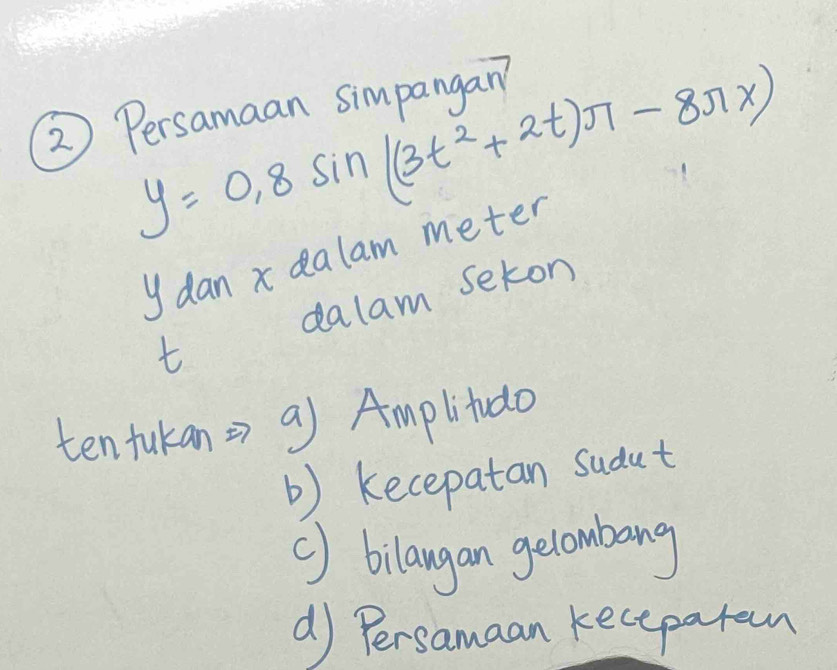 ② Persamaan simpangan
y = 0,8 sin ((3t² + 2t)π - 8πx)
y dan x dalam meter
t dalam sekon
tentukan => a) Amplitudo
b) kecepatan sudut
c) bilangan gelombang
d) Persamaan kecepatan